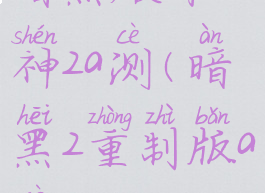 shén cè àn
神2a测(暗
hēi zhòng zhì bǎn
黑2重制版a